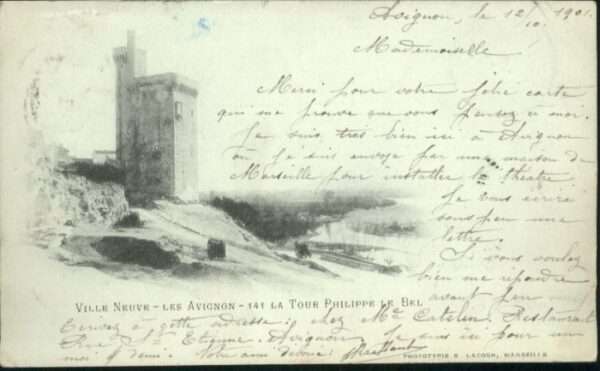 Avignon, le 12/10. 1901.
Mademoiselle
Merci pour votre jolie carte
qui me prouve que vous pensez à moi.
Je suis très bien ici à Avignon
où je suis envoyé par une maison de
Marseille pour installer le théatre
Je vous écrirai
sous peu une
lettre.
Si vous voulez
bien me répondre
avant peu
VILLE NEUVE - LES AVIGNON - 141 LA TOUR PHILIPPE LE BEL
Ecrivez à cette adresse: chez Me Restaurant
Rue St Etienne. Avignon. Je suis ici pour un
moi 1/2 demi. Votre ami dévoué:
PHOTOTYPIE E. LACOUR, MARSEILLE